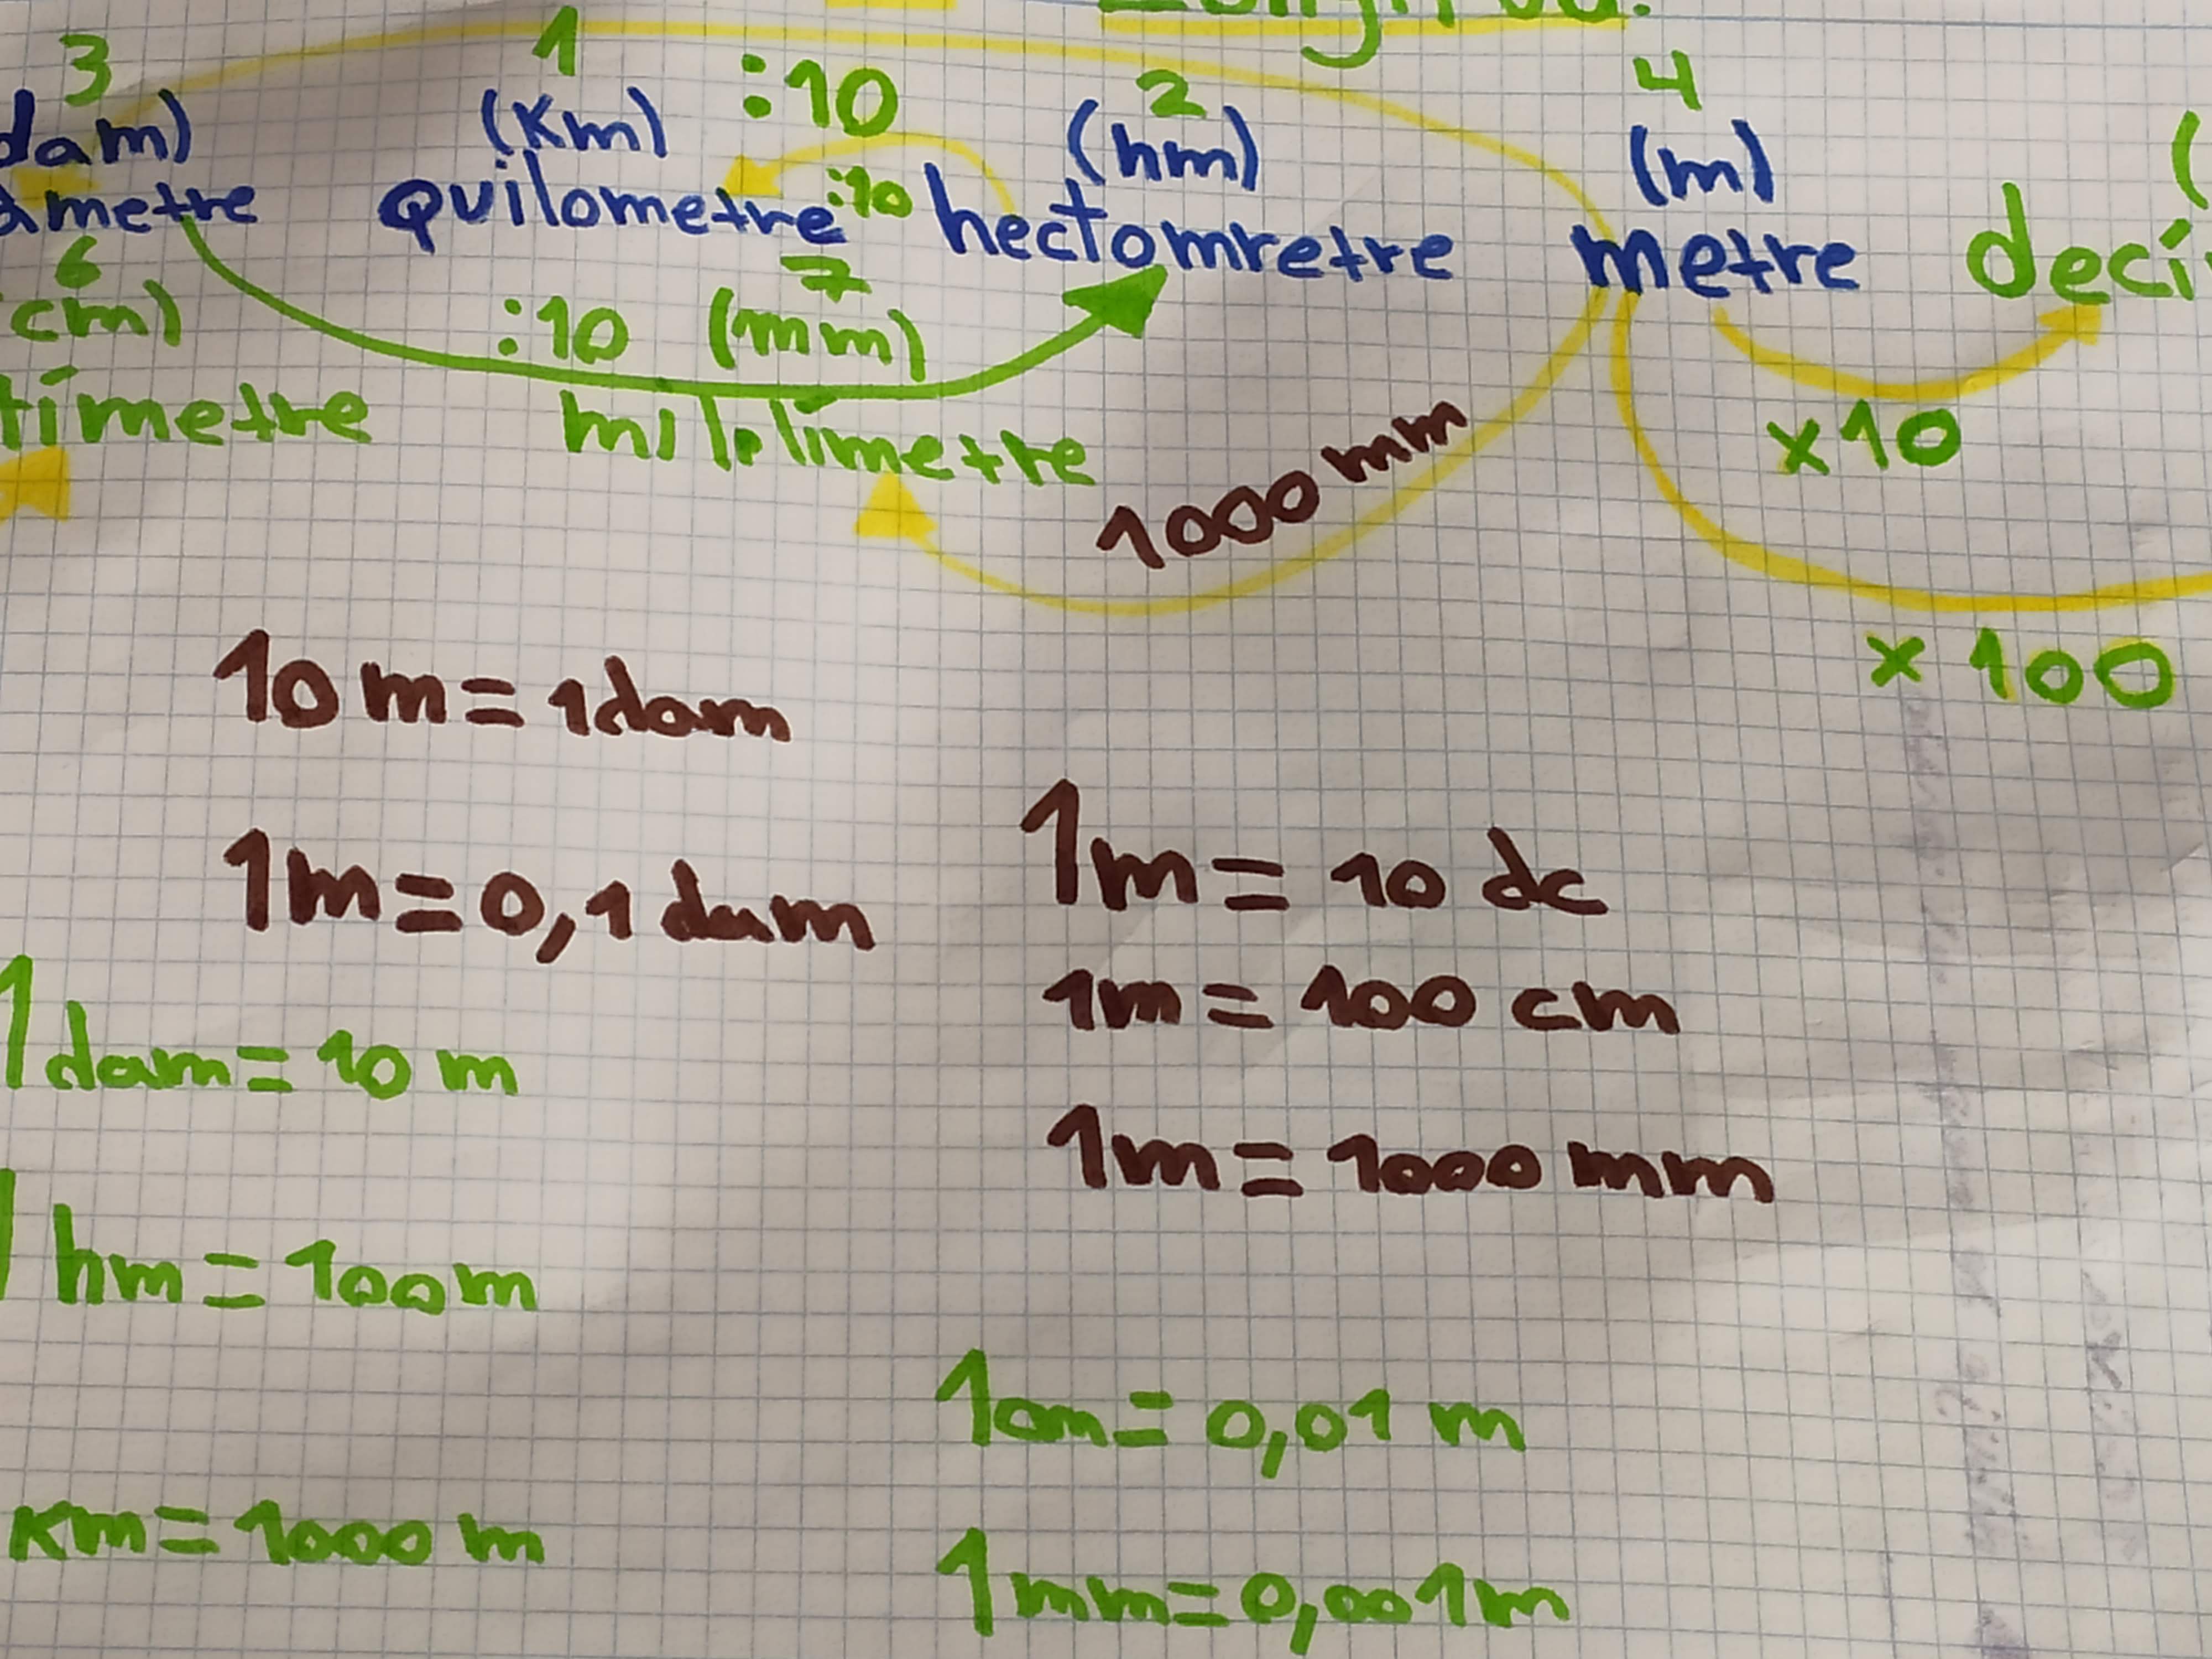 3 1 :10 2 4
dam) (Km) (hm) (m) (
àmetre quilometre :10 hectomretre metre decí
6 7
cm) :10 (mm)
tímetre mil·límetre x10
1000 mm
x 100
10 m = 1dam
1m = 0,1 dam
1m = 10 dc
1m = 100 cm
1 dam = 10 m
1m = 1000 mm
hm = 100m
1cm = 0,01 m
Km = 1000 m
1mm = 0,001m